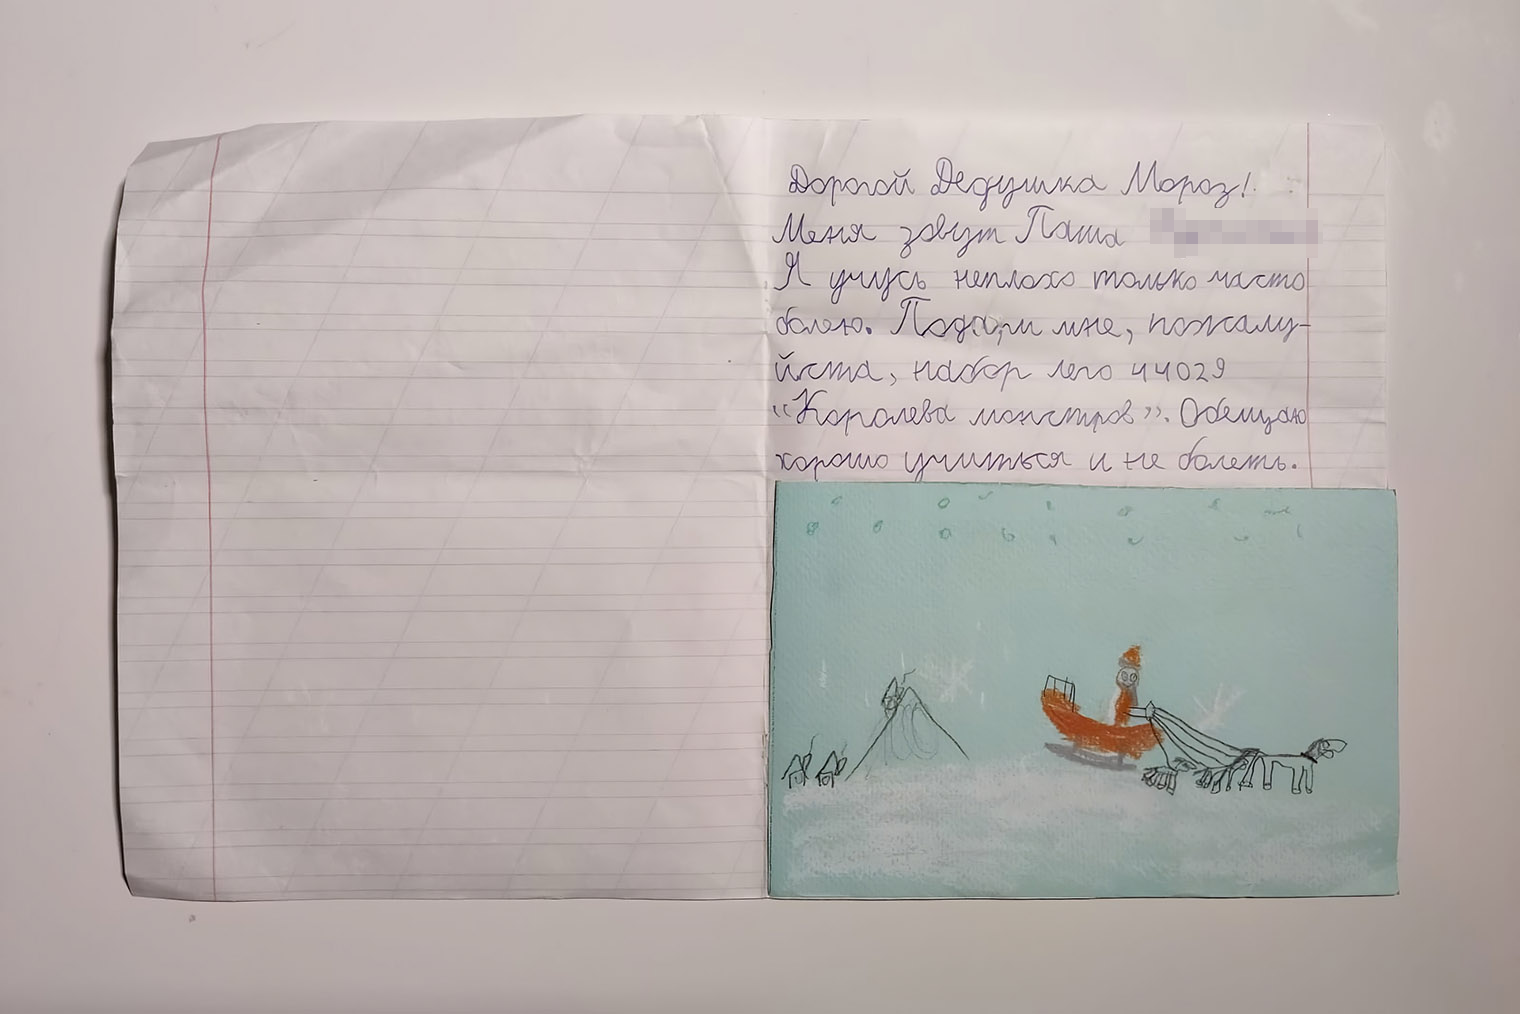 Дорогой Дедушка Мороз!
Меня зовут Паша
Я учусь неплохо только часто
болею. Подари мне, пожалу-
йста, набор лего 44029
"Королева монстров". Обещаю
хорошо учиться и не болеть.